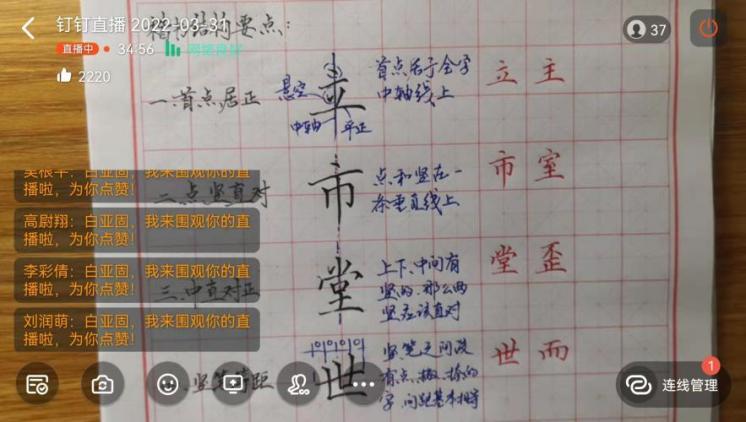 钉钉直播 2022-03-31
结构要点：
直播中 34:56
37
2220
一.首点居正
悬空
中轴
平正
首点居于全字
中轴线上
立 主
吴根平：白亚固，我来围观你的直
播啦，为你点赞！
二.点竖直对
市
点和竖在一
条垂直线上
市 室
高尉翔：白亚固，我来围观你的直
播啦，为你点赞！
李彩倩：白亚固，我来围观你的直
播啦，为你点赞！
三.中直对正
堂
上下、中间有
竖的，那么两
竖应该直对
堂 歪
刘润萌：白亚固，我来围观你的直
播啦，为你点赞！
竖笔等距
世
竖笔之间没
有点、撇、捺的
字，间距基本相等
世 而
1
连线管理